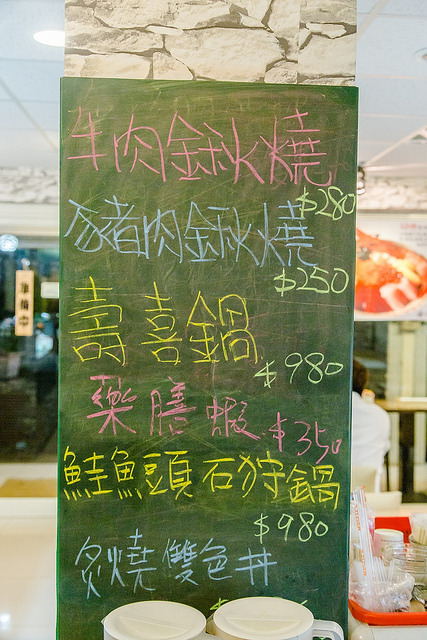 牛肉鍬燒
$280
豬肉鍬燒
$250
壽喜鍋
$980
藥膳蝦 $350
鮭魚頭石狩鍋
$980
炙燒雙色丼
準備中